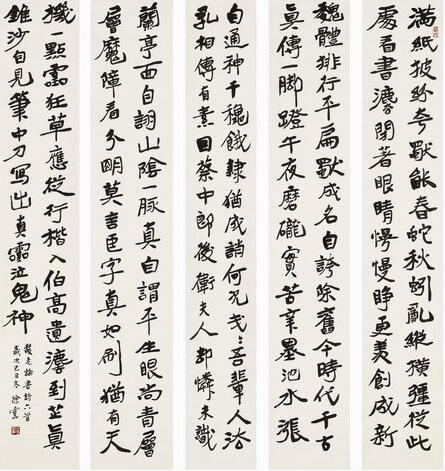 滿紙披紛夸能春蛇秋蚓亂縱橫彊從此
處看書灋閉著眼睛慢慢睜更羡創成新
魏體排行平扁歇成名自誇除舊今時代千古
真傳一脚蹬午夜磨礲實苦辛墨池水漲
自通神千穐餓隸猶成誚何況戔戔吾輩人浴
乳相傳有素因蔡中郎後衛夫人都憐未識
蘭亭面自詡山陰一脉真自謂平生眼尚青層
層魔障看分明莫言臣字真如刷猶有天
機一點靈狂草應從行楷入伯高遺灋到芝真
錐沙自見筆中力寫出真靈泣鬼神
散老論書詩六首
歲次己丑冬徐